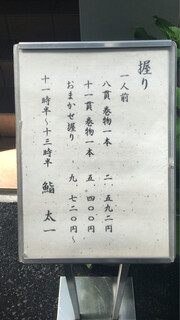 握り
一人前
八貫 巻物一本 二、五九二円
十一貫 巻物一本 五、四〇〇円
おまかせ握り 九、七二〇円〜
十一時半〜十三時半 鮨 太一